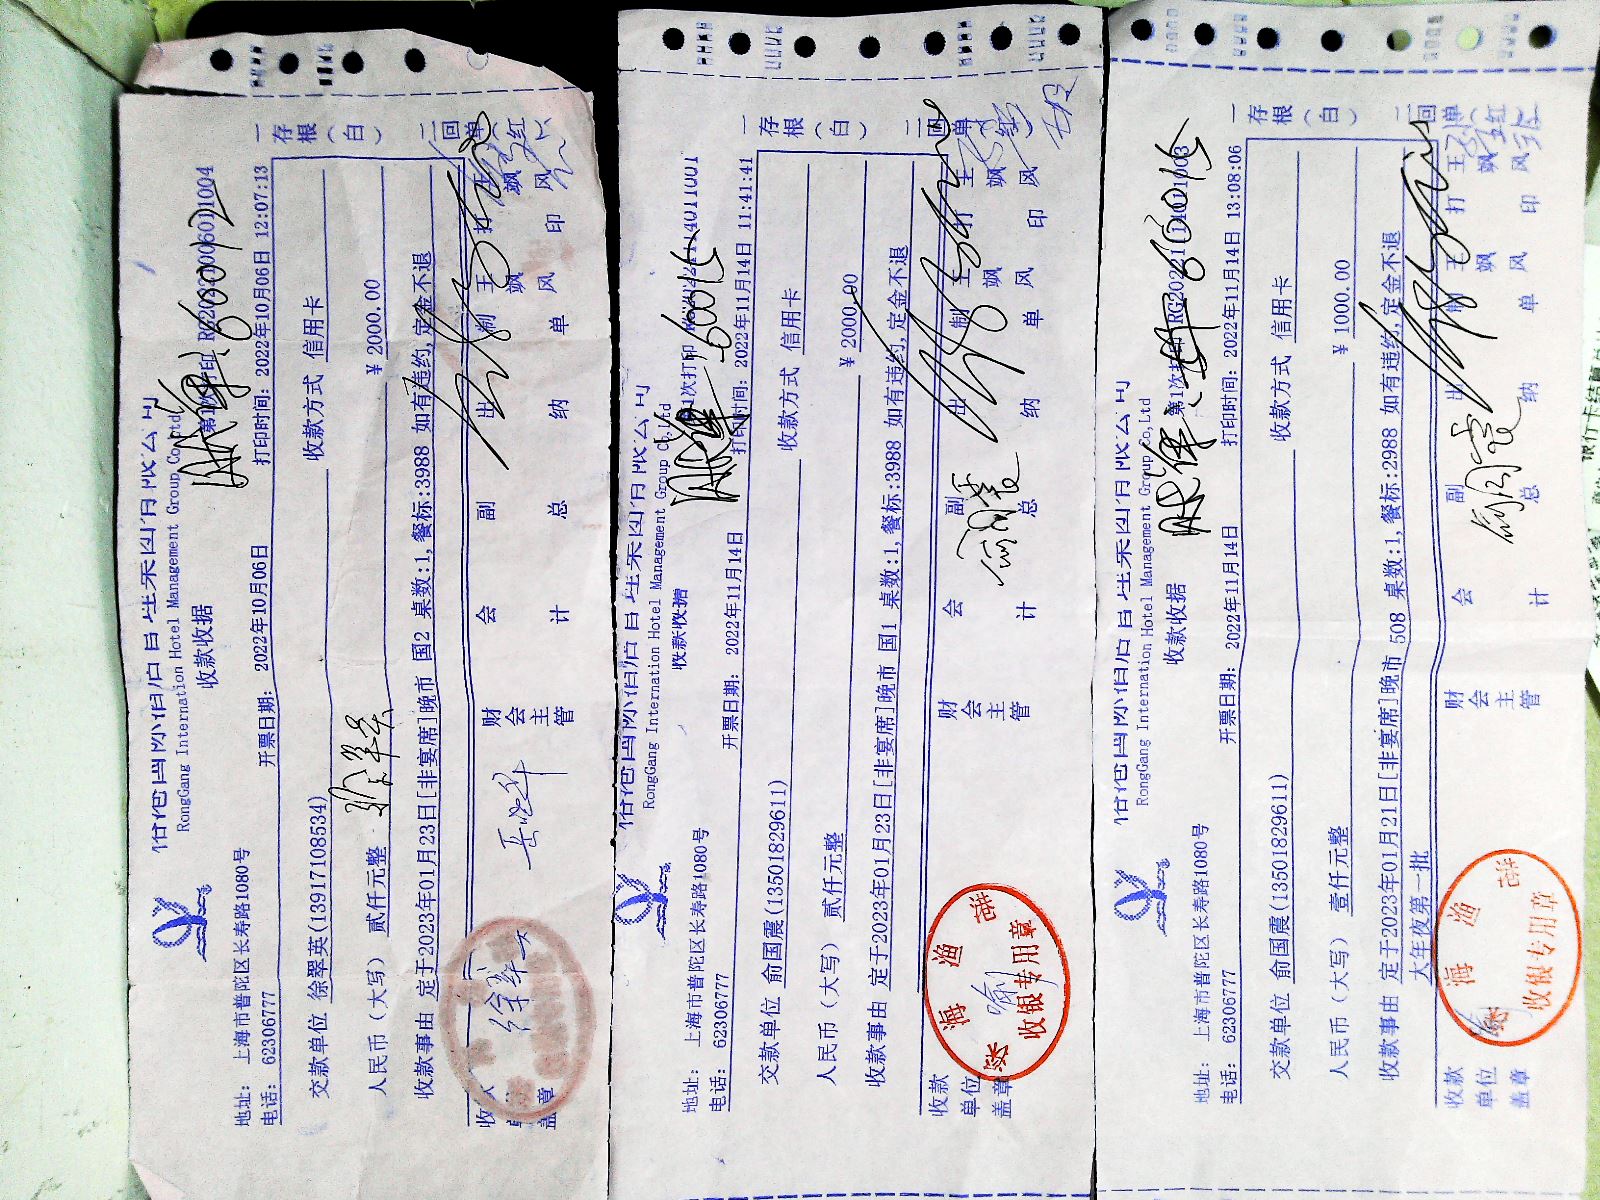 RongGang International Hotel Management Group Co,Ltd
收款收据
地址: 上海市普陀区长寿路1080号
电话: 62306777
开票日期: 2022年10月06日
打印时间: 2022年10月06日 12:07:13
一存根(白)
二回单(红)
交款单位 徐翠英(13917108534)
收款方式 信用卡
人民币(大写) 贰仟元整
¥ 2000.00
收款事由 定于2023年01月23日[非宴席]晚市 国2 桌数:1,餐标:3988 如有违约,定金不退
财会主管
会计
副总
出纳
制单
王飒风
打印
王飒风
RongGang International Hotel Management Group Co,Ltd
收款收据
地址: 上海市普陀区长寿路1080号
电话: 62306777
开票日期: 2022年11月14日
打印时间: 2022年11月14日 11:41:41
一存根(白)
二回单(红)
交款单位 俞国震(13501829611)
收款方式 信用卡
人民币(大写) 贰仟元整
¥ 2000.00
收款事由 定于2023年01月23日[非宴席]晚市 国1 桌数:1,餐标:3988 如有违约,定金不退
收款单位盖章
收银专用章
财会主管
会计
副总
出纳
制单
王飒风
打印
王飒风
RongGang International Hotel Management Group Co,Ltd
收款收据
第1次打印
地址: 上海市普陀区长寿路1080号
电话: 62306777
开票日期: 2022年11月14日
打印时间: 2022年11月14日 13:08:06
一存根(白)
二回单(红)
交款单位 俞国震(13501829611)
收款方式 信用卡
人民币(大写) 壹仟元整
¥ 1000.00
收款事由 定于2023年01月21日[非宴席]晚市 508 桌数:1,餐标:2988 如有违约,定金不退
大年夜第一批
收款单位盖章
收银专用章
财会主管
会计
副总
出纳
制单
王飒风
打印
王飒风